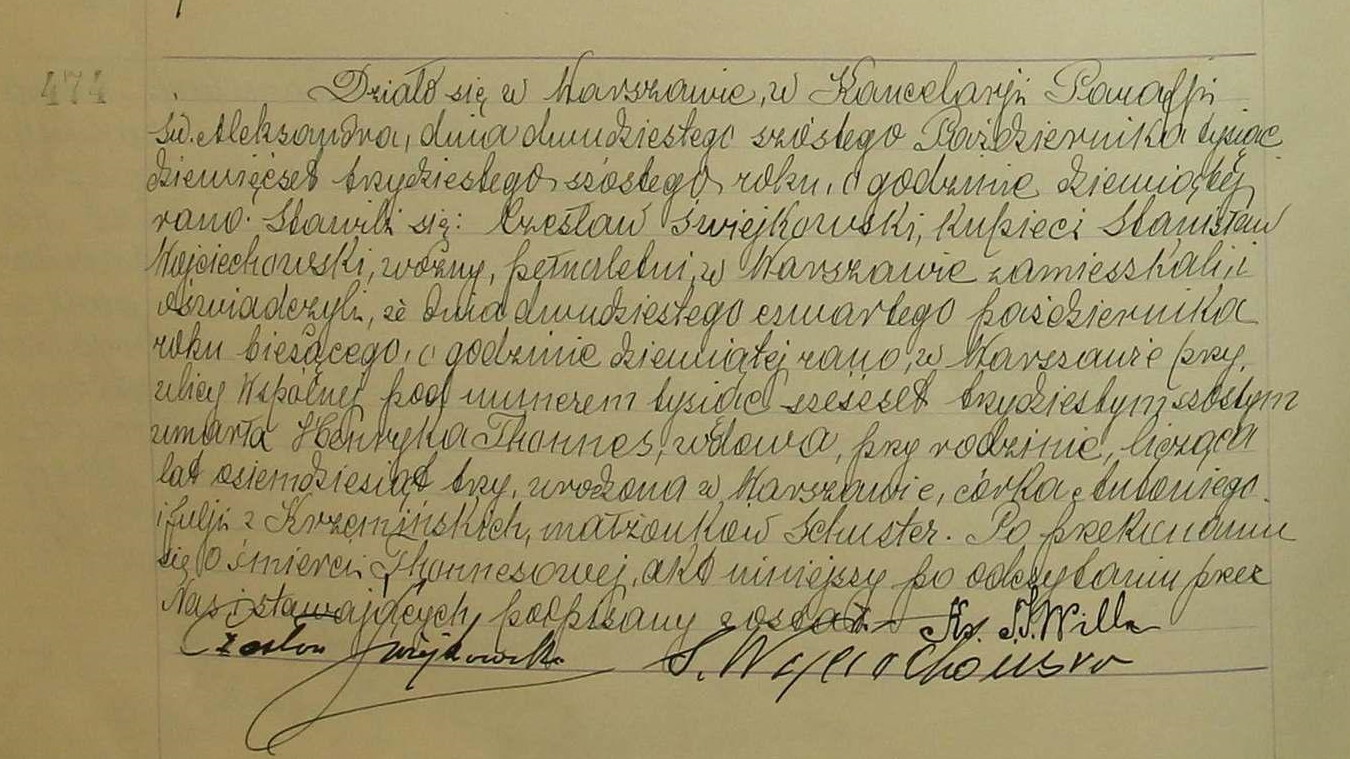 474
Działo się w Warszawie, w Kancelaryji Parafji
św. Aleksandra, dnia dwudziestego szóstego Października tysiąc
dziewięćset trzydziestego szóstego roku, o godzinie dziewiątej
rano. Stawili się: Czesław Świejkowski, kupiec i Stanisław
Wojciechowski, woźny, pełnoletni, w Warszawie zamieszkali, i
oświadczyli, że dnia dwudziestego czwartego października
roku bieżącego, o godzinie dziewiątej rano, w Warszawie przy
ulicy Wspólnej pod numerem tysiąc sześćset trzydziestym szóstym
umarła Henryka Thonnes, wdowa, przy rodzinie, licząca
lat osiemdziesiąt trzy, urodzona w Warszawie, córka Antoniego
i Julji z Krzemińskich, małżonków Schuster. Po przekonaniu
się o śmierci Thonnesowej, akt niniejszy po odczytaniu przez
Nas i stawających podpisany został. Ks. J.Willa
Czesław Świejkowski S. Wojciechowski